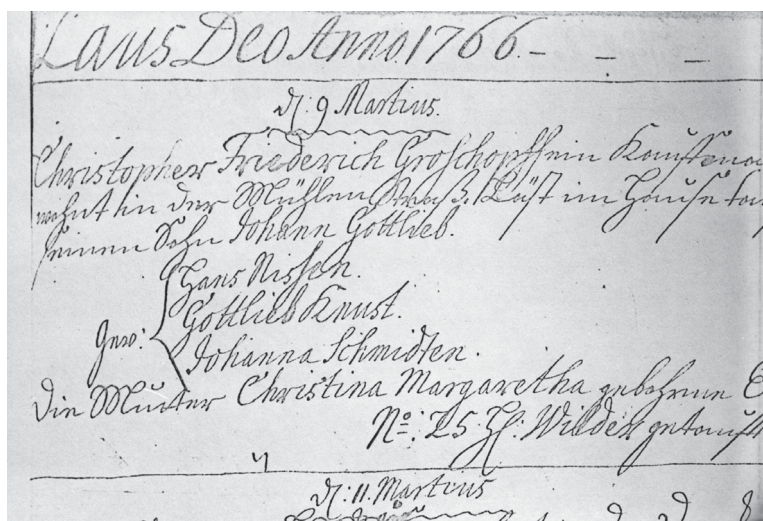 Laus Deo Anno. 1766 - - -
d: 9 Martius.
Christopher Friederich Groschopff ein
wohnt in der Mühlen Straß. Läst im Hause
seinen Sohn Johann Gottlieb.
Hans Nissen.
Gev: Gottlieb Knust.
Johanna Schmidten.
Die Mutter Christina Margaretha gebohrne
No: 25 H: Wilder getauft
d: 11. Martius